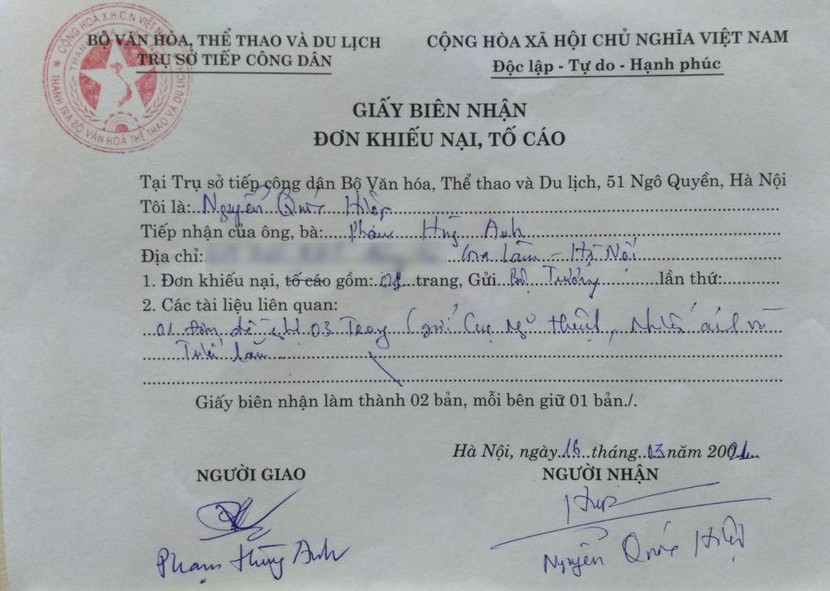 BỘ VĂN HÓA, THỂ THAO VÀ DU LỊCH
TRỤ SỞ TIẾP CÔNG DÂN
CỘNG HÒA XÃ HỘI CHỦ NGHĨA VIỆT NAM
Độc lập - Tự do - Hạnh phúc
GIẤY BIÊN NHẬN
ĐƠN KHIẾU NẠI, TỐ CÁO
Tại Trụ sở tiếp công dân Bộ Văn hóa, Thể thao và Du lịch, 51 Ngô Quyền, Hà Nội
Tôi là: Nguyễn Quốc Hiệp
Tiếp nhận của ông, bà: Phạm Hùng Anh
Địa chỉ: Gia Lâm - Hà Nội
1. Đơn khiếu nại, tố cáo gồm: trang, Gửi Bộ Trưởng lần thứ:
2. Các tài liệu liên quan:
01 đơn đề nghị 03 Trang Cục Nghệ thuật, Nhiếp ảnh và
Triển lãm
Giấy biên nhận làm thành 02 bản, mỗi bên giữ 01 bản./.
Hà Nội, ngày 16 tháng 03 năm
NGƯỜI GIAO
NGƯỜI NHẬN
Phạm Hùng Anh
Nguyễn Quốc Hiệp